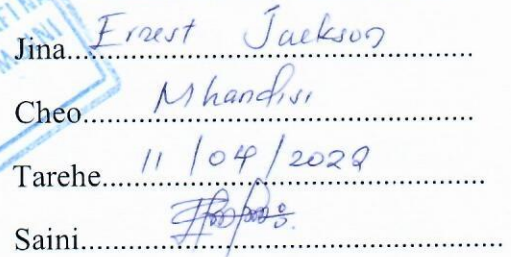 Jina....Ernest Jackson
Cheo....Mhandisi
Tarehe....11/04/2022
Saini....